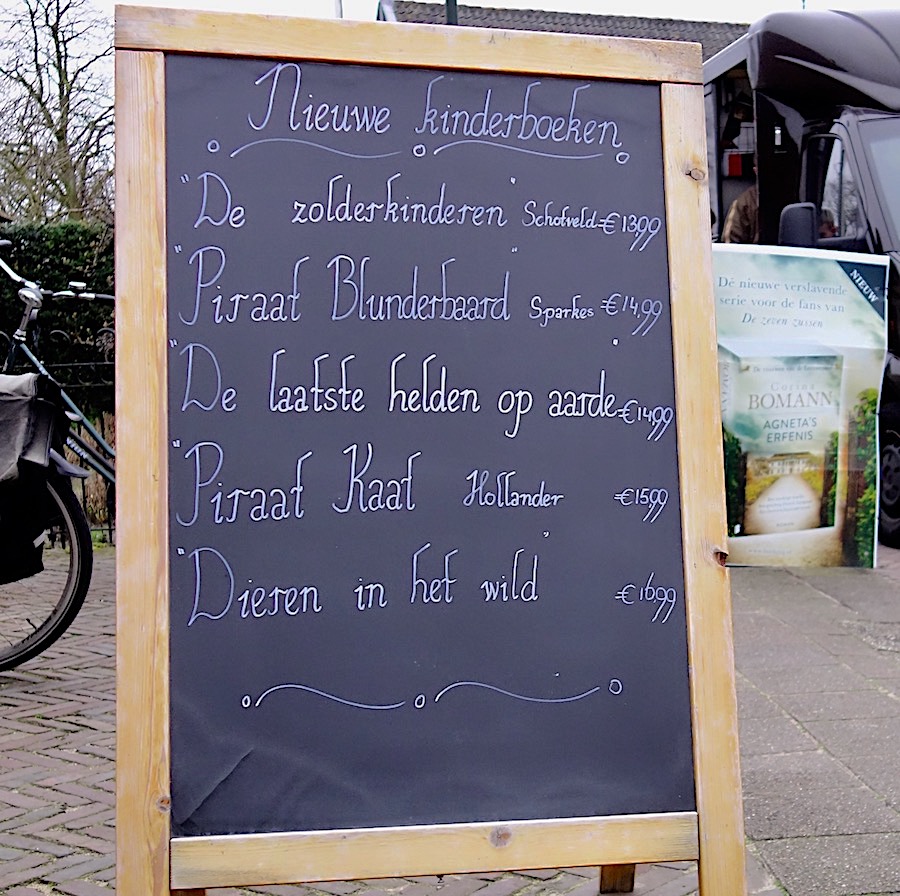 Nieuwe kinderboeken
"De zolderkinderen" Schotveld €13,99
"Piraat Blunderbaard" Sparkes €14,99
"De laatste helden op aarde" €14,99
"Piraat Kaat Hollander €15,99
"Dieren in het wild" €16,99
NIEUW
Dé nieuwe verslavende
serie voor de fans van
De zeven zussen
Corina
BOMANN
AGNETA'S
ERFENIS